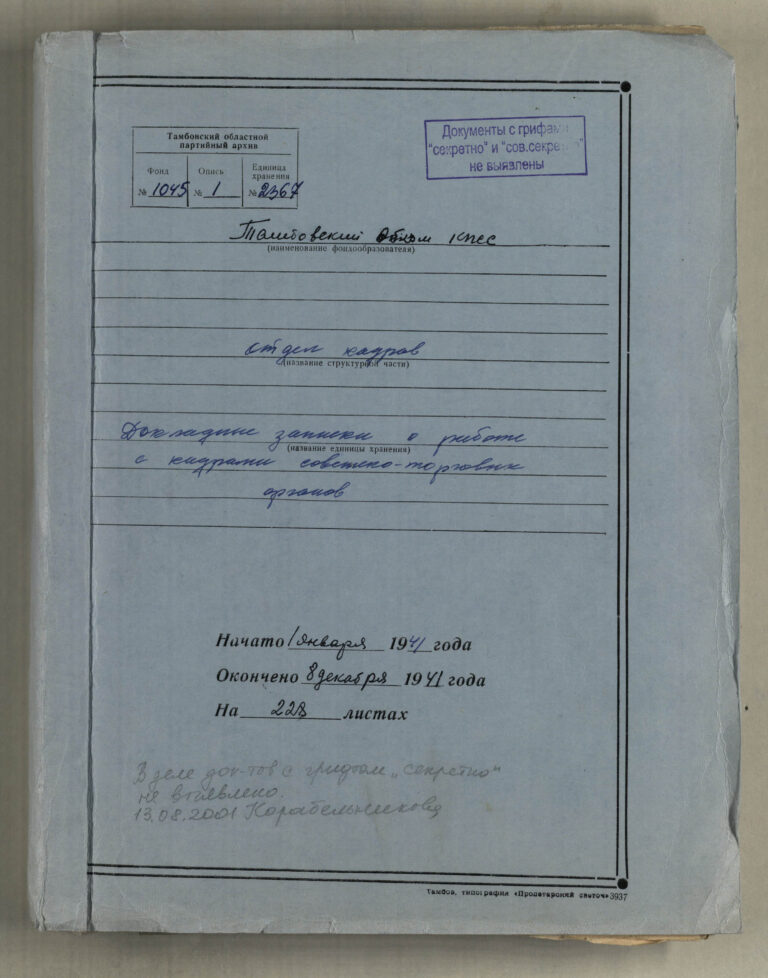 Тамбовский областной
партийный архив
Фонд Опись Единица хранения
№ 1045 № 1 № 2367
Документы с грифами
"секретно" и "сов.секретно"
не выявлены
Тамбовский обком КПСС
(наименование фондообразователя)
отдел кадров
(название структурной части)
Докладные записки о работе
(название единицы хранения)
с кадрами советско-торговых
органов
Начато 1 января 1941 года
Окончено 8 декабря 1941 года
На 228 листах
В деле док-тов с грифом „секретно"
не выявлено.
13.08.2001 Корабельникова
Тамбов, типография «Пролетарский светоч» 3937